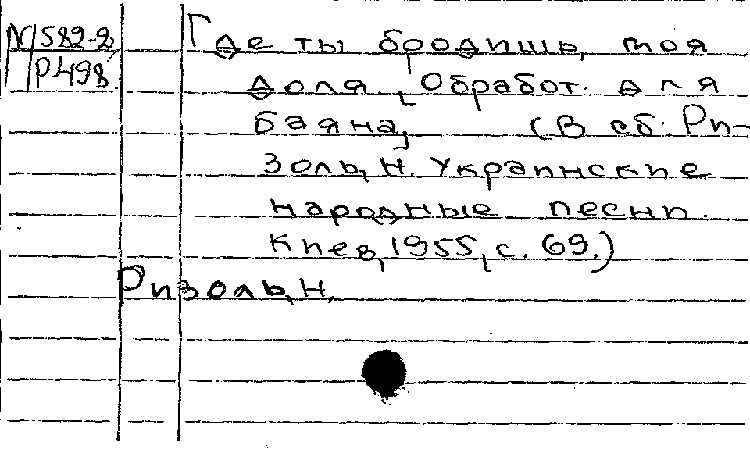 N 582-2
P498
Где ты бродишь, моя
доля, [Обработ. для
баяна]       (В сб: Ри-
золь, Н. Украинские
народные песни.
Киев, 1955, с. 69.)
Ризоль, Н.